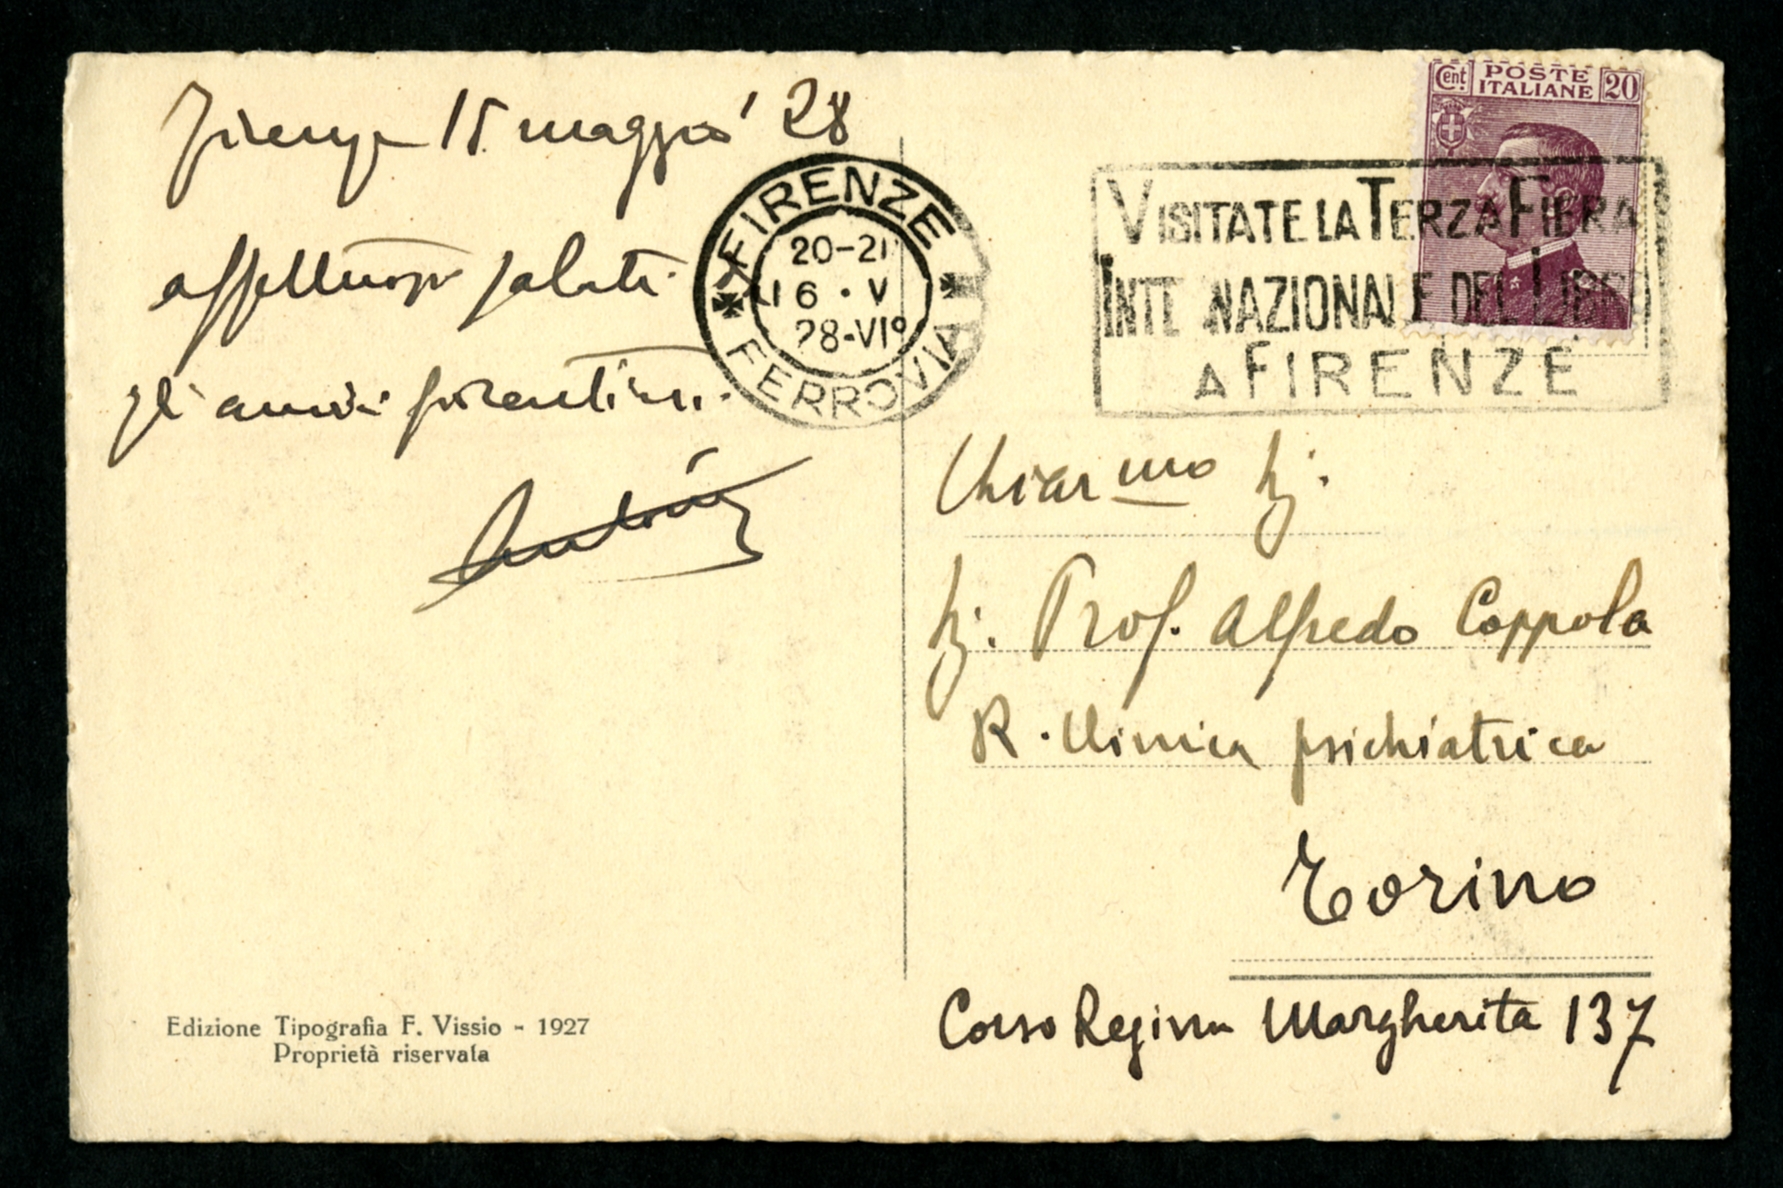 Firenze 15 maggio '28
affettuosi saluti
gli amici fiorentini.
FIRENZE
20-21
16 · V
28-VI°
FERROVIA
Cent. POSTE ITALIANE 20
VISITATE LA TERZA FIERA
INTE NAZIONALE DEL LIBRO
A FIRENZE
Chiar mo Sig.
Sig. Prof. Alfredo Coppola
R. Clinica psichiatrica
Torino
Corso Regina Margherita 137
Edizione Tipografia F. Vissio - 1927
Proprietà riservata